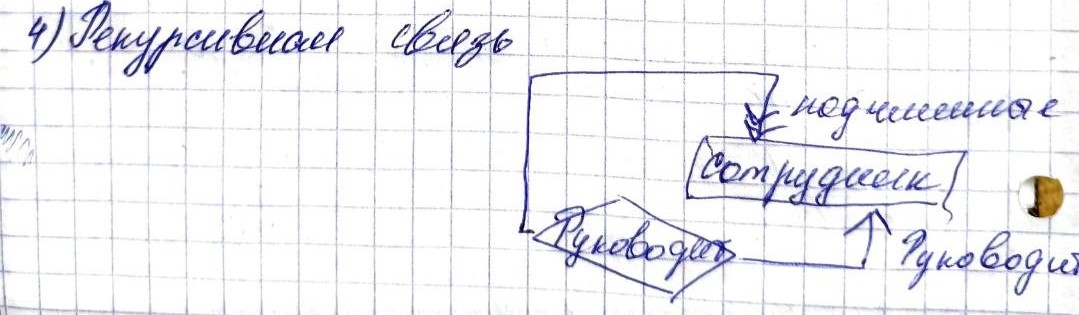 4) Рекурсивная связь
подчиненные
Сотрудник
Руководит
Руководит